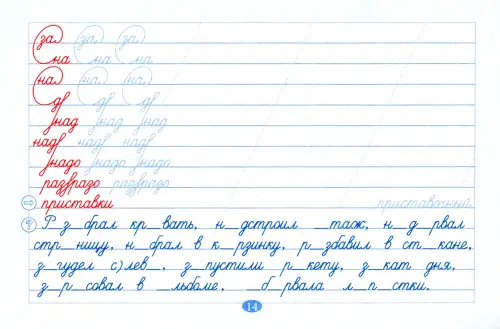 за за за
на на на
на на на
д д д
над над над
над над над
надо надо надо
раз/разо раз/разо
приставки приставочный
Р_з_брал кр_вать, н_дстроил _таж, н_д_рвал
стр_ницу, н_брал в к_рзинку, р_збавил в ст_кане,
з_гудел с)лев_, з_пустили р_кету, з_кат дня,
з_р_совал в _льбоме, _б_рвала л_п_стки.
14